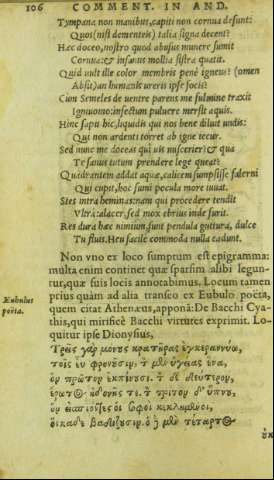 106 COMMENT. IN AND.
Tympana non manibus, capiti non cornua desunt:
Quos (nisi dementeis) talia signa decent?
Hæc doceo, nostro quod abusus munere sumit
Cornua: & insanus mollia sistra quatit.
Quid vult ille color membris penè igneus? (omen
Absit) an humanis ureris ipse focis?
Cùm Semeles de uentre parens me fulmine traxit
Ignivomo: infectum puluere mersit aquis.
Hinc sapit hic, liquidis qui nos bene diluit undis:
Qui non ardenti torret ab igne iecur.
Sed nunc me doceas qui uis misceri: & qua
Te sanus tutum prendere lege queat?
Quadrantem addat aquæ, calicem sumpsisse falerni
Qui cupit, hoc sumi pocula more iuuat.
Stes intra heminas: nam qui procedere tendit
Vltra: alacer, sed mox ebrius inde furit.
Res dura hæc nimium, sunt pendula guttura, dulce
Tu fluis. Heu facile commoda nulla cadunt.
Non vno ex loco sumptum est epigramma:
multa enim continet quæ sparsim alibi legun-
tur, quæ suis locis annotabimus. Locum tamen
prius quàm ad alia transeo ex Eubulo poëta,
Eubulus poëta.
quem citat Athenæus, apponā: De Bacchi Cya-
this, qui mirificè Bacchi virtutes exprimit. Lo-
quitur ipse Dionysius,
Τρεῖς γὰρ μόνους κρατῆρας ἐγκεραννύω,
τοῖς εὖ φρονοῦσιν. τ̀ μὲν ὑγείας ἕνα,
ὃν πρῶτον ἐκπίνουσι. τ̀ δὲ δεύτερον,
ἔρωτος ἡδονῆς τε. τ̀ τρίτον δ᾽ ὕπνου,
ὃν εἰσπιόντες οἱ σοφοὶ κεκλημένοι,
οἴκαδε βαδίζουσιν. ὁ ἢ μὲν τέταρτος
ἐκ